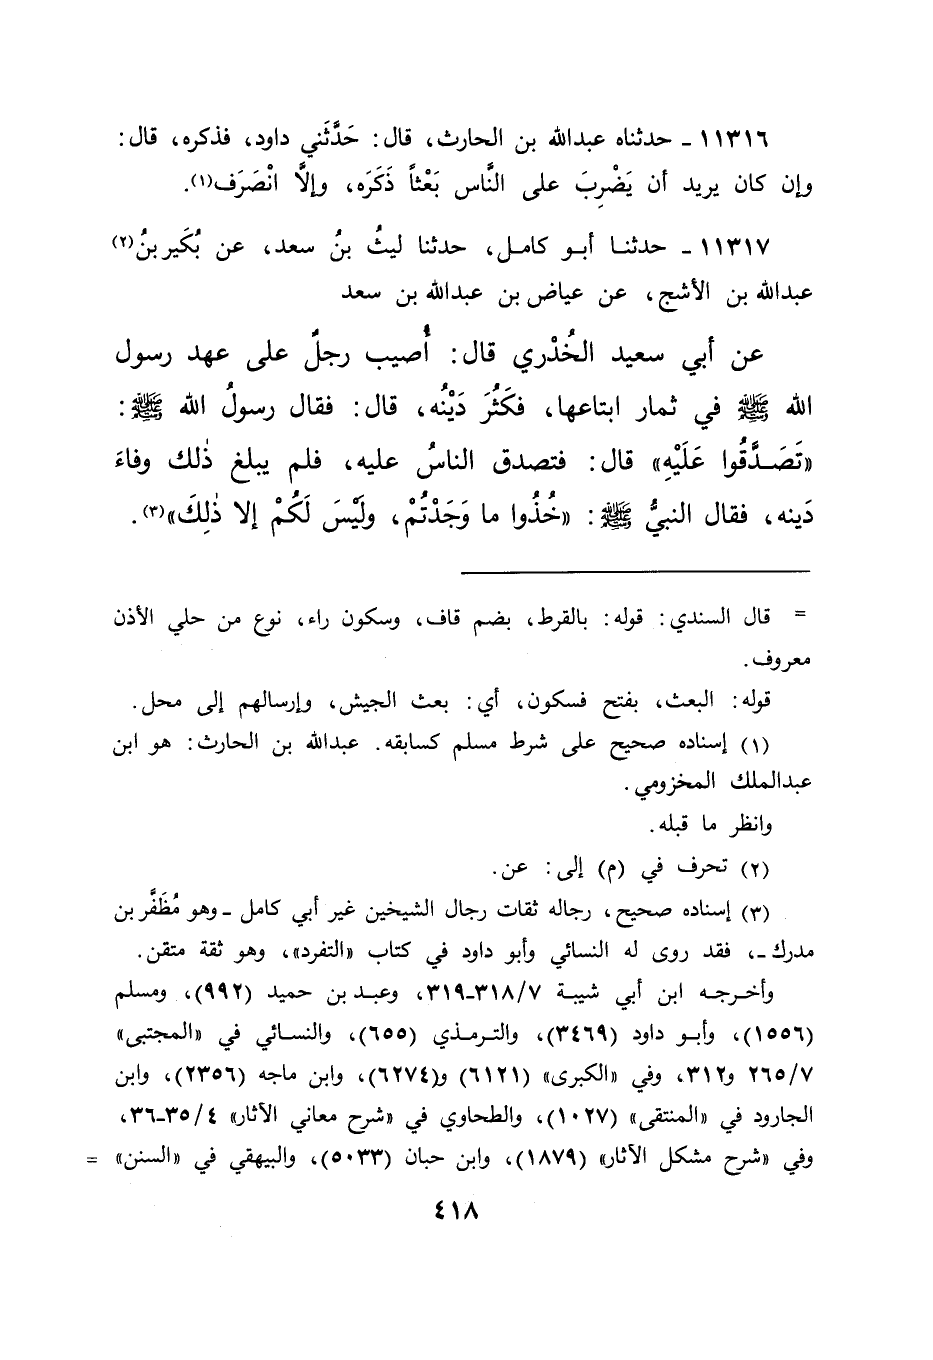 ١١٣١٦ ـ حدثناه عبدالله بن الحارث، قال: حَدَّثَني داود، فذكره، قال:
وإن كان يريد أن يَضْرِبَ على النَّاس بَعْثاً ذَكَرَه، وإلَّا انْصَرَف(١).
١١٣١٧ ـ حدثنا أبو كامل، حدثنا ليثُ بنُ سعد، عن بُكَير بنُ(٢)
عبدالله بن الأشج، عن عياض بن عبدالله بن سعد
عن أبي سعيد الخُدْري قال: أُصيب رجلٌ على عهد رسول
الله ﷺ في ثمار ابتاعها، فكَثُرَ دَيْنُه، قال: فقال رسولُ الله ﷺ:
«تَصَدَّقُوا عَلَيْهِ» قال: فتصدق الناسُ عليه، فلم يبلغ ذٰلك وفاءَ
دَينه، فقال النبيُّ ﷺ: «خُذُوا ما وَجَدْتُمْ، ولَيْسَ لَكُمْ إلا ذٰلِكَ»(٣).
= قال السندي: قوله: بالقرط، بضم قاف، وسكون راء، نوع من حلي الأذن
معروف.
قوله: البعث، بفتح فسكون، أي: بعث الجيش، وإرسالهم إلى محل.
(١) إسناده صحيح على شرط مسلم كسابقه. عبدالله بن الحارث: هو ابن
عبدالملك المخزومي.
وانظر ما قبله.
(٢) تحرف في (م) إلى: عن.
(٣) إسناده صحيح، رجاله ثقات رجال الشيخين غير أبي كامل ـ وهو مُظَفَّر بن
مدرك ـ، فقد روى له النسائي وأبو داود في كتاب «التفرد»، وهو ثقة متقن.
وأخرجه ابن أبي شيبة ٣١٨/٧-٣١٩، وعبد بن حميد (٩٩٢)، ومسلم
(١٥٥٦)، وأبو داود (٣٤٦٩)، والترمذي (٦٥٥)، والنسائي في «المجتبى»
٢٦٥/٧ و٣١٢، وفي «الكبرى» (٦١٢١) و(٦٢٧٤)، وابن ماجه (٢٣٥٦)، وابن
الجارود في «المنتقى» (١٠٢٧)، والطحاوي في «شرح معاني الآثار» ٣٥/٤-٣٦،
وفي «شرح مشكل الآثار» (١٨٧٩)، وابن حبان (٥٠٣٣)، والبيهقي في «السنن» =
٤١٨